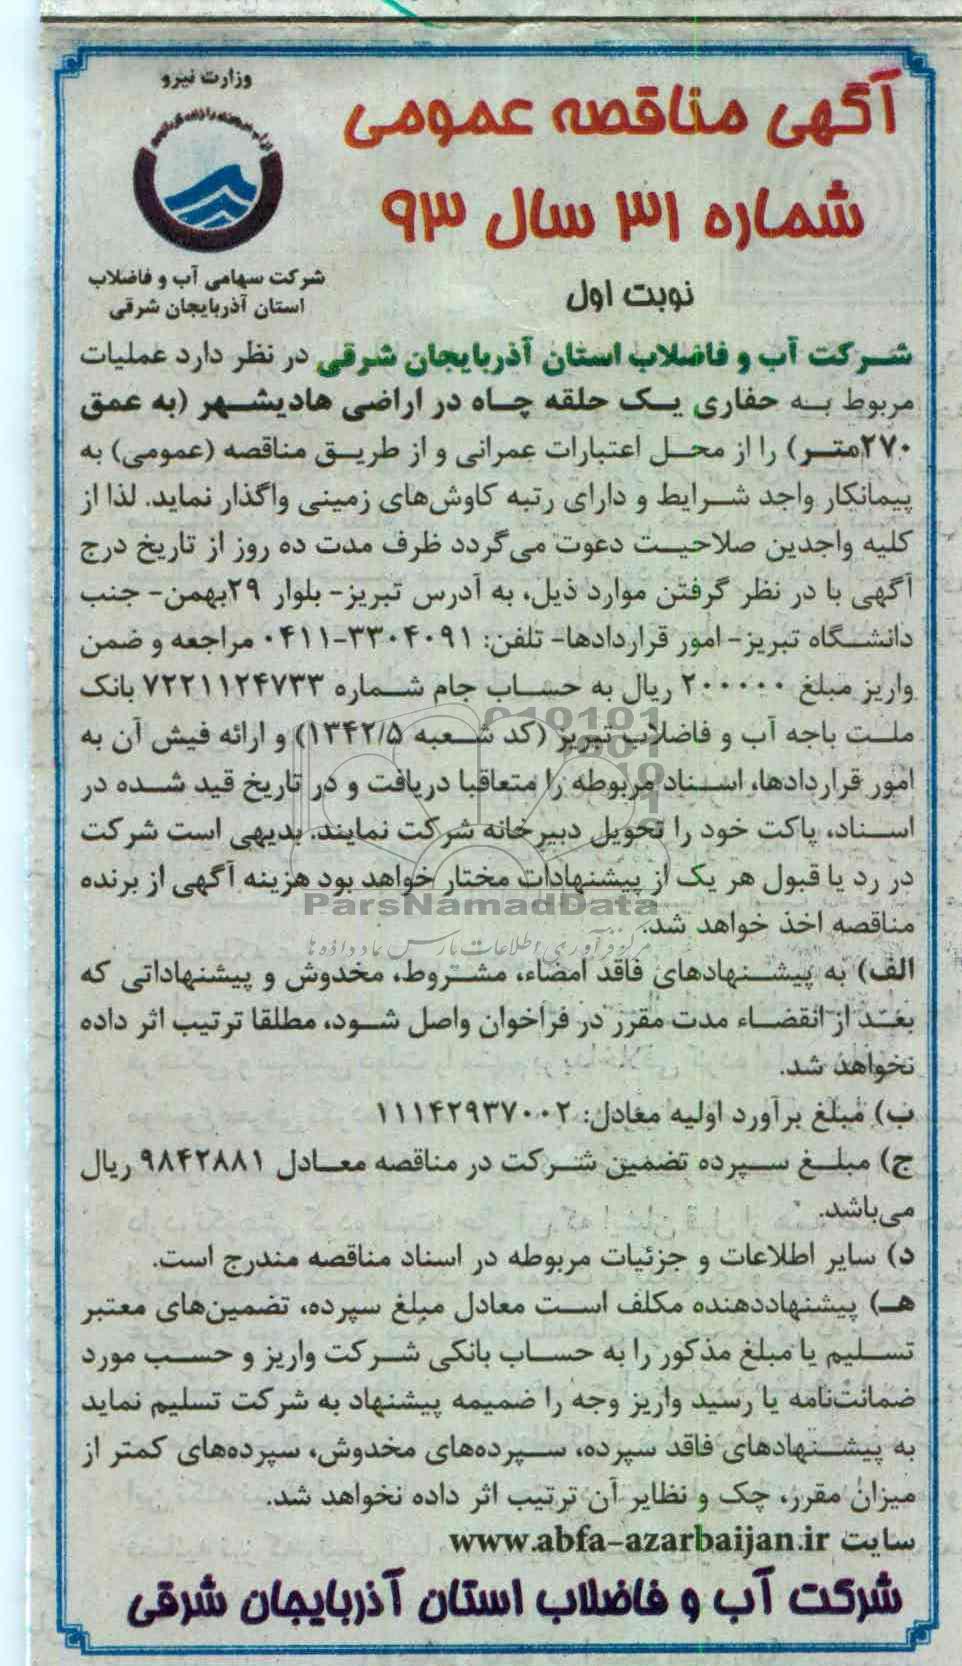 وزارت نیرو
شرکت سهامی آب و فاضلاب
استان آذربایجان شرقی
آگهی مناقصه عمومی
شماره ۳۱ سال ۹۳
نوبت اول
شرکت آب و فاضلاب استان آذربایجان شرقی در نظر دارد عملیات
مربوط به حفاری یک حلقه چاه در اراضی هادیشهر (به عمق
۲۷۰متر) را از محل اعتبارات عمرانی و از طریق مناقصه (عمومی) به
پیمانکار واجد شرایط و دارای رتبه کاوش‌های زمینی واگذار نماید. لذا از
کلیه واجدین صلاحیت دعوت می‌گردد ظرف مدت ده روز از تاریخ درج
آگهی با در نظر گرفتن موارد ذیل، به آدرس تبریز- بلوار ۲۹بهمن- جنب
دانشگاه تبریز- امور قراردادها- تلفن: ۳۳۰۴۰۹۱-۰۴۱۱ مراجعه و ضمن
واریز مبلغ ۲۰۰۰۰۰ ریال به حساب جام شماره ۷۲۲۱۱۲۴۷۳۳ بانک
ملت باجه آب و فاضلاب تبریز (کد شعبه ۱۳۴۲/۵) و ارائه فیش آن به
امور قراردادها، اسناد مربوطه را متعاقبا دریافت و در تاریخ قید شده در
اسناد، پاکت خود را تحویل دبیرخانه شرکت نمایند. بدیهی است شرکت
در رد یا قبول هر یک از پیشنهادات مختار خواهد بود هزینه آگهی از برنده
مناقصه اخذ خواهد شد.
ParsNamadData
مرکز فرآوری اطلاعات پارس نماد داده ها
الف) به پیشنهادهای فاقد امضاء، مشروط، مخدوش و پیشنهاداتی که
بعد از انقضاء مدت مقرر در فراخوان واصل شود، مطلقا ترتیب اثر داده
نخواهد شد.
ب) مبلغ برآورد اولیه معادل: ۱۱۱۴۲۹۳۷۰۰۲
ج) مبلغ سپرده تضمین شرکت در مناقصه معادل ۹۸۴۲۸۸۱ ریال
می‌باشد.
د) سایر اطلاعات و جزئیات مربوطه در اسناد مناقصه مندرج است.
هـ) پیشنهاددهنده مکلف است معادل مبلغ سپرده، تضمین‌های معتبر
تسلیم یا مبلغ مذکور را به حساب بانکی شرکت واریز و حسب مورد
ضمانت‌نامه یا رسید واریز وجه را ضمیمه پیشنهاد به شرکت تسلیم نماید
به پیشنهادهای فاقد سپرده، سپرده‌های مخدوش، سپرده‌های کمتر از
میزان مقرر، چک و نظایر آن ترتیب اثر داده نخواهد شد.
سایت www.abfa-azarbaijan.ir
شرکت آب و فاضلاب استان آذربایجان شرقی